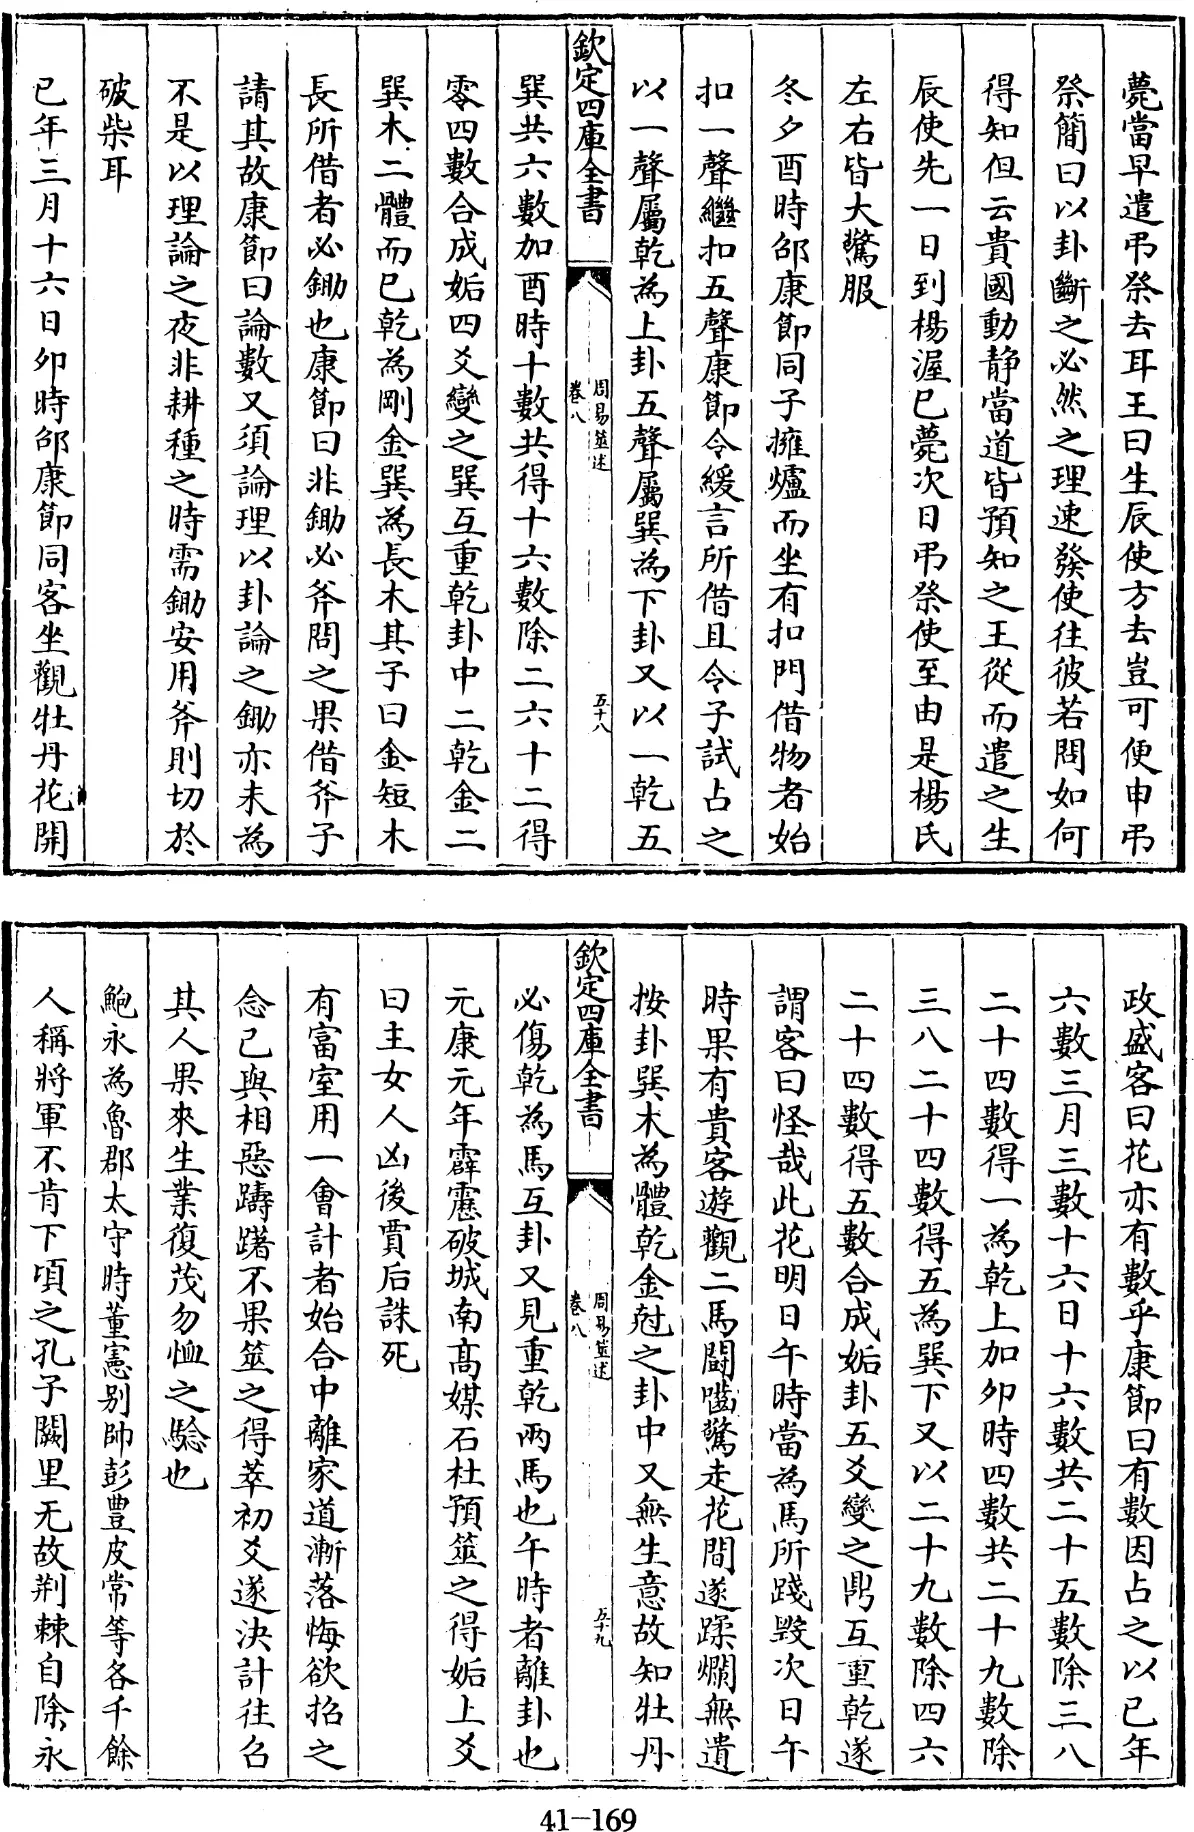 薨當早遣弔祭去耳王曰生辰使方去豈可便申弔
祭簡曰以卦斷之必然之理速發使往彼若問如何
得知但云貴國動静當道皆預知之王從而遣之生
辰使先一日到楊渥已薨次日弔祭使至由是楊氏
左右皆大驚服
冬夕酉時邵康節同子擁爐而坐有扣門借物者始
扣一聲繼扣五聲康節令緩言所借且令子試占之
以一聲屬乾為上卦五聲屬巽為下卦又以一乾五
欽定四庫全書
周易筮述
卷八
五十八
巽共六數加酉時十數共得十六數除二六十二得
零四數合成姤四爻變之巽互重乾卦中二乾金二
巽木二體而已乾為剛金巽為長木其子曰金短木
長所借者必鋤也康節曰非鋤必斧問之果借斧子
請其故康節曰論數又須論理以卦論之鋤亦未為
不是以理論之夜非耕種之時需鋤安用斧則切於
破柴耳
已年三月十六日卯時邵康節同客坐觀牡丹花開
政盛客曰花亦有數乎康節曰有數因占之以已年
六數三月三數十六日十六數共二十五數除三八
二十四數得一為乾上加卯時四數共二十九數除
三八二十四數得五為巽下又以二十九數除四六
二十四數得五數合成姤卦五爻變之鼎互重乾遂
謂客曰怪哉此花明日午時當為馬所踐毀次日午
時果有貴客遊觀二馬鬬嚙驚走花間遂蹂爛無遺
按卦巽木為體乾金尅之卦中又無生意故知牡丹
欽定四庫全書
周易筮述
卷八
五十九
必傷乾為馬互卦又見重乾兩馬也午時者離卦也
元康元年霹靂破城南髙媒石杜預筮之得姤上爻
曰主女人凶後賈后誅死
有富室用一會計者始合中離家道漸落悔欲招之
念已與相惡躊躇不果筮之得萃初爻遂決計往召
其人果來生業復茂勿恤之驗也
鮑永為魯郡太守時董憲别帥彭豊皮常等各千餘
人稱將軍不肯下頃之孔子闕里无故荆棘自除永
41-169